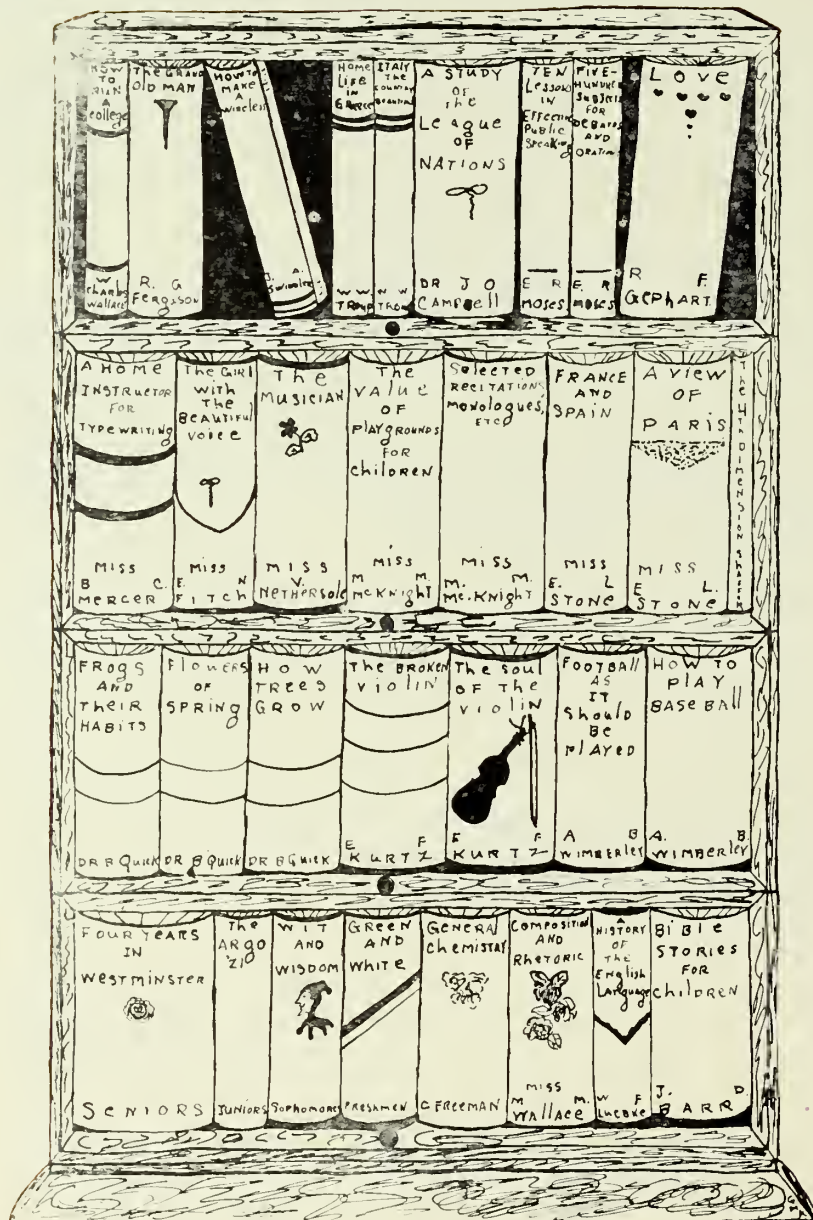 HOW
TO
RUN
A
College
W
Charles
Wallace
The GRAND
OLD MAN
R. G
Ferguson
HOW TO
MAKE
A
wireless
J. A.
Swindler
HOME
LIFE
IN
GREECE
W W
TROUP
ITALY
THE
COUNTRY
BEAUTIFUL
W W
TROUP
A STUDY
OF
The
League
OF
NATIONS
DR J O
CAMPBell
TEN
Lessons
IN
Effective
Public
Speaking
E R
MOSES
FIVE-
HUNDRED
Subjects
FOR
DEBATES
AND
ORATIONS
E. R
MOSES
LOVE
R F.
GEPHART
A HOME
INSTRUCTOR
FOR
TYPEWRITING
MISS
B C.
MERCER
The GIRL
with
The
BEAUTIFUL
Voice
MISS
E. N
FITCh
The
MUSICIAN
MISS
V.
NETHERSOLE
The
VALUE
OF
PLAYGROUNDS
FOR
Children
MISS
M M.
McKnighT
Selected
RECITATIONS,
Monologues,
ETC
MISS
M. M.
Mc.Knight
FRANCE
AND
SPAIN
MISS
E. L
STONE
A VIEW
OF
PARIS
MISS
E L.
STONE
THE 4TH DIMENSION SHAFFER
FROGS
AND
TheiR
HABITS
DR B Quick
FLOWERS
OF
SPRING
DR B Quick
HOW
TREES
GROW
DR B Quick
The BROKEN
VIOLIN
E F
KURTZ
The Soul
OF The
VIOLIN
E F
KURTZ
FOOTBAll
AS
IT
Should
BE
PlAYED
A B
WIMBERLEY
HOW TO
PLAY
BASE BAll
A. B.
WIMBERlEY
FOUR YEARS
IN
WESTMINSTER
SENIORS
The
ARGO
'21
JUNIORS
WIT
AND
WISDOM
Sophomores
GREEN
AND
White
FRESHMEN
GENERAl
Chemistry
C FREEMAN
Composition
AND
RheToRIC
MISS
M M.
Wallace
A
HISTORY
OF
THE
English
Language
W F
Luebke
BiBle
STORIES
FOR
Children
J. D
BARR